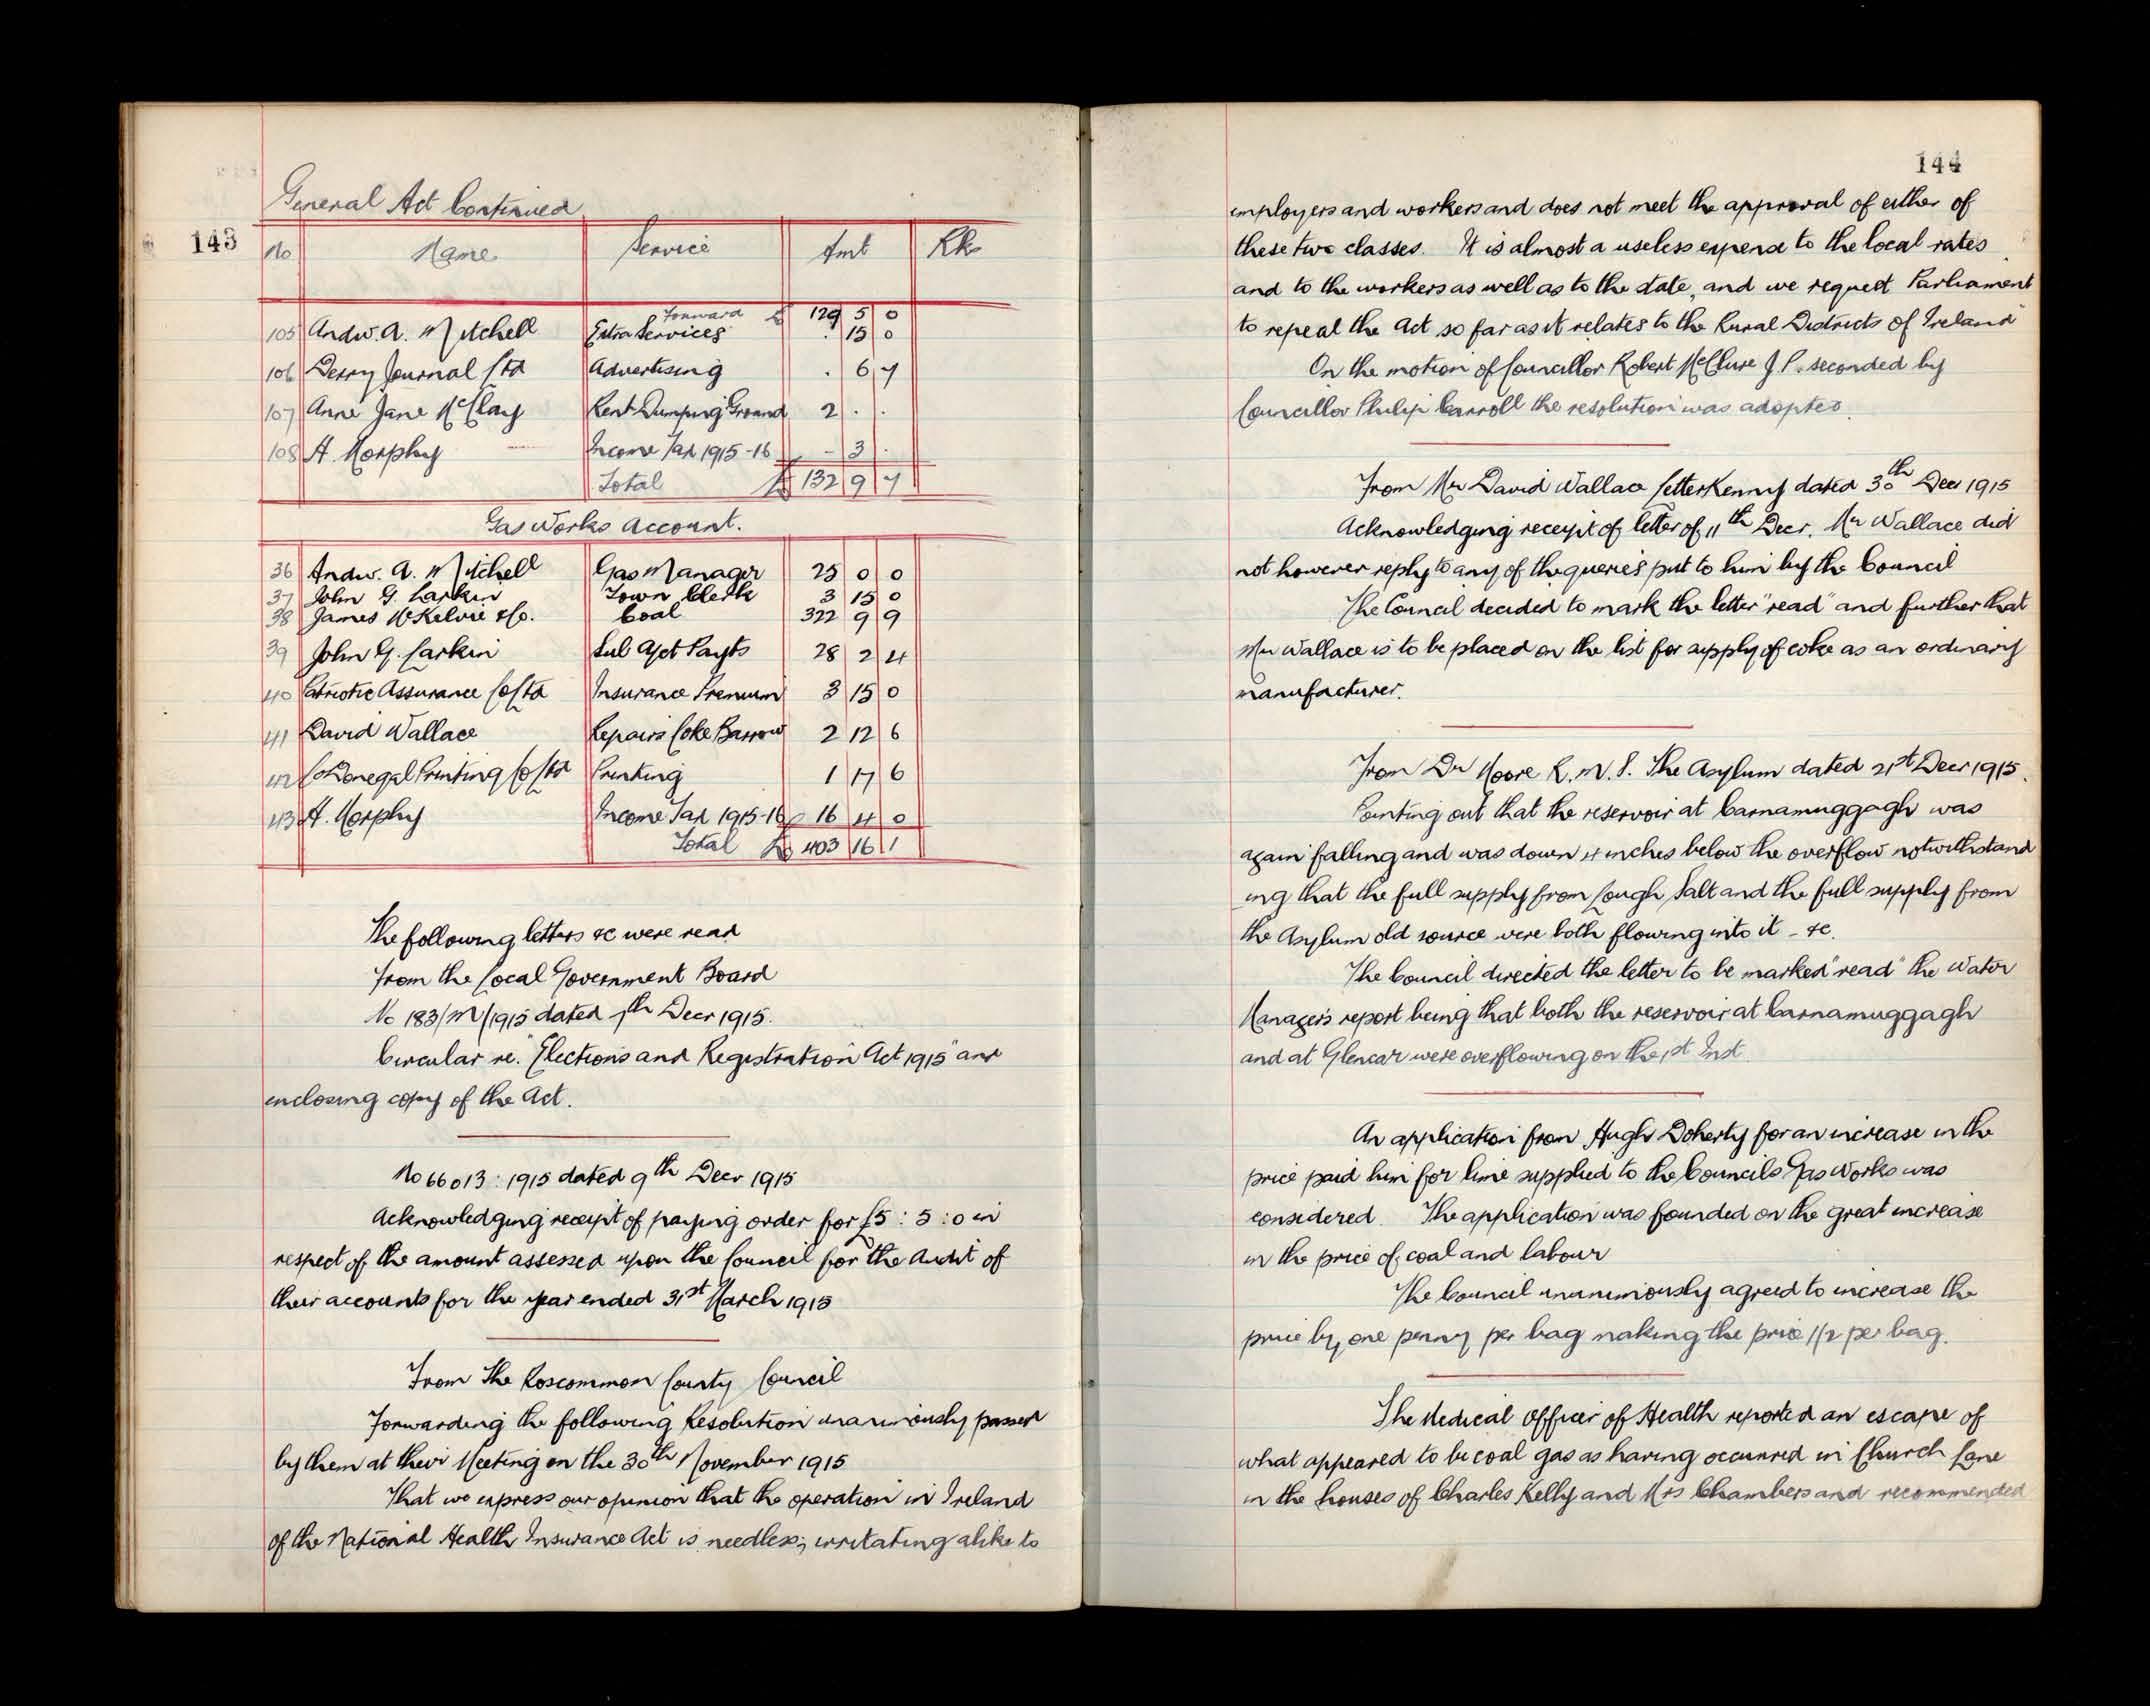 143
General Act Continued
No Name Service Amt Rks
Forward £ 129 5 0
105 Andw. A. Mitchell Extra Services . 15 0
106 Derry Journal Ltd Advertising . 6 7
107 Anne Jane McClay Rent Dumping Ground 2 . .
108 H. Morphy Income Tax 1915-16 - 3 .
Total £ 132 9 7
Gas Works Account.
36 Andw. A. Mitchell Gas Manager 25 0 0
37 John G. Larkin Town Clerk 3 15 0
38 James McKelvie & Co. Coal 322 9 9
39 John G. Larkin Sub Act Payts 28 2 4
40 Patriotic Assurance Co Ltd Insurance Premium 3 15 0
41 David Wallace Repairs Coke Barrow 2 12 6
42 Co Donegal Printing Co Ltd Printing 1 17 6
43 H. Morphy Income Tax 1915-16 16 4 0
Total £ 403 16 1
The following letters &c were read
From the Local Government Board
No 183/M/1915 dated 7th Decr 1915.
Circular re. "Elections and Registration Act 1915" and
enclosing copy of the Act.
No 66013 : 1915 dated 9th Decr 1915
Acknowledging receipt of paying order for £5 : 5 : 0 in
respect of the amount assessed upon the Council for the Audit of
their accounts for the year ended 31st March 1915
From The Roscommon County Council
Forwarding the following Resolution unanimously passed
by them at their Meeting on the 30th November 1915
That we express our opinion that the operation in Ireland
of the National Health Insurance Act is needless; irritating alike to
144
employers and workers and does not meet the approval of either of
these two classes. It is almost a useless expense to the local rates
and to the workers as well as to the state, and we request Parliament
to repeal the Act so far as it relates to the Rural Districts of Ireland"
On the motion of Councillor Robert McClure J.P. seconded by
Councillor Philip Carroll the resolution was adopted.
From Mr David Wallace Letterkenny dated 30th Decr 1915
Acknowledging receipt of letter of 11th Decr. Mr Wallace did
not however reply to any of the queries put to him by the Council
The Council decided to mark the letter "read" and further that
Mr Wallace is to be placed on the list for supply of coke as an ordinary
manufacturer.
From Dr Moore R.M.S. The Asylum dated 21st Decr 1915.
Pointing out that the reservoir at Carnamuggagh was
again falling and was down 4 inches below the overflow notwithstand
ing that the full supply from Lough Salt and the full supply from
the Asylum old source were both flowing into it - &c.
The Council directed the letter to be marked "read" the Water
Managers report being that both the reservoir at Carnamuggagh
and at Glencar were overflowing on the 1st Inst.
An application from Hugh Doherty for an increase in the
price paid him for lime supplied to the Councils Gas Works was
considered. The application was founded on the great increase
in the price of coal and labour
The Council unanimously agreed to increase the
price by one penny per bag making the price 1/2 per bag.
The Medical Officer of Health reported an escape of
what appeared to be coal gas as having occurred in Church Lane
in the houses of Charles Kelly and Mrs Chambers and recommended